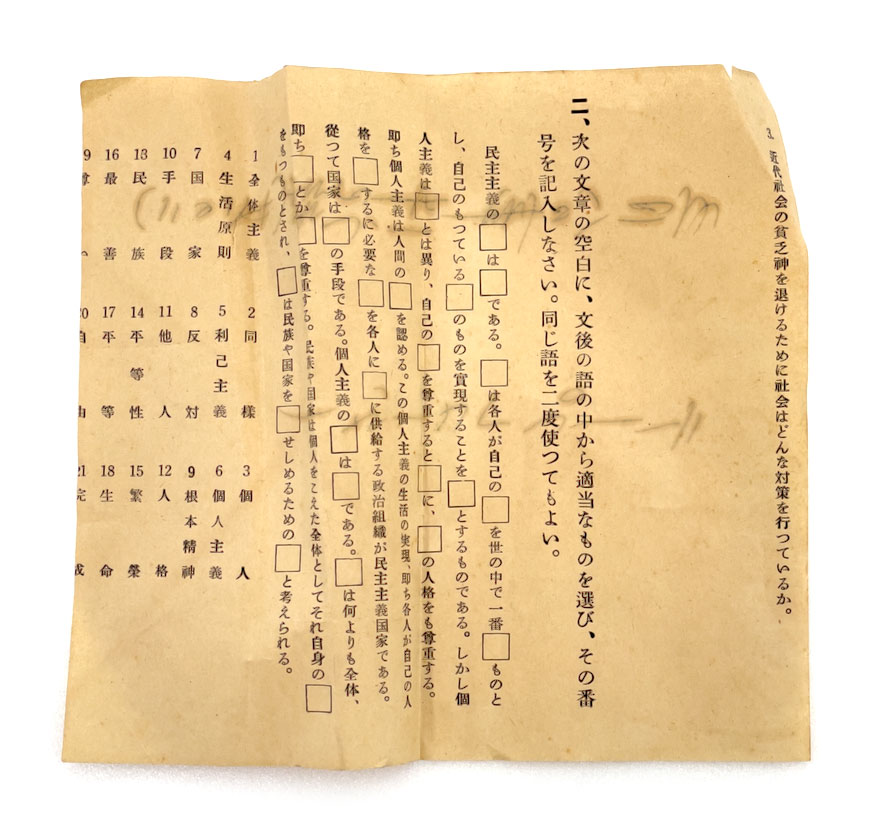 3. 近代社会の貧乏神を退けるために社会はどんな対策を行つているか。
二、次の文章の空白に、文後の語の中から適当なものを選び、その番
号を記入しなさい。同じ語を二度使つてもよい。
民主主義の□は□である。□は各人が自己の□を世の中で一番□ものと
し、自己のもつている□のものを實現することを□とするものである。しかし個
人主義は□とは異り、自己の□を尊重すると□に、□の人格をも尊重する。
即ち個人主義は人間の□を認める。この個人主義の生活の実現、即ち各人が自己の人
格を□するに必要な□を各人に□に供給する政治組織が民主主義国家である。
從つて国家は□の手段である。個人主義の□は□である。□は何よりも全体、
即ち□とか□を尊重する。民族や国家は個人をこえた全体としてそれ自身の□
をもつものとされ、□は民族や国家を□せしめるための□と考えられる。
1 全体主義 2 同様 3 個人
4 生活原則 5 利己主義 6 個人主義
7 国家 8 反対 9 根本精神
10 手段 11 他人 12 人格
13 民族 14 平等性 15 繁榮
16 最善 17 平等 18 生命